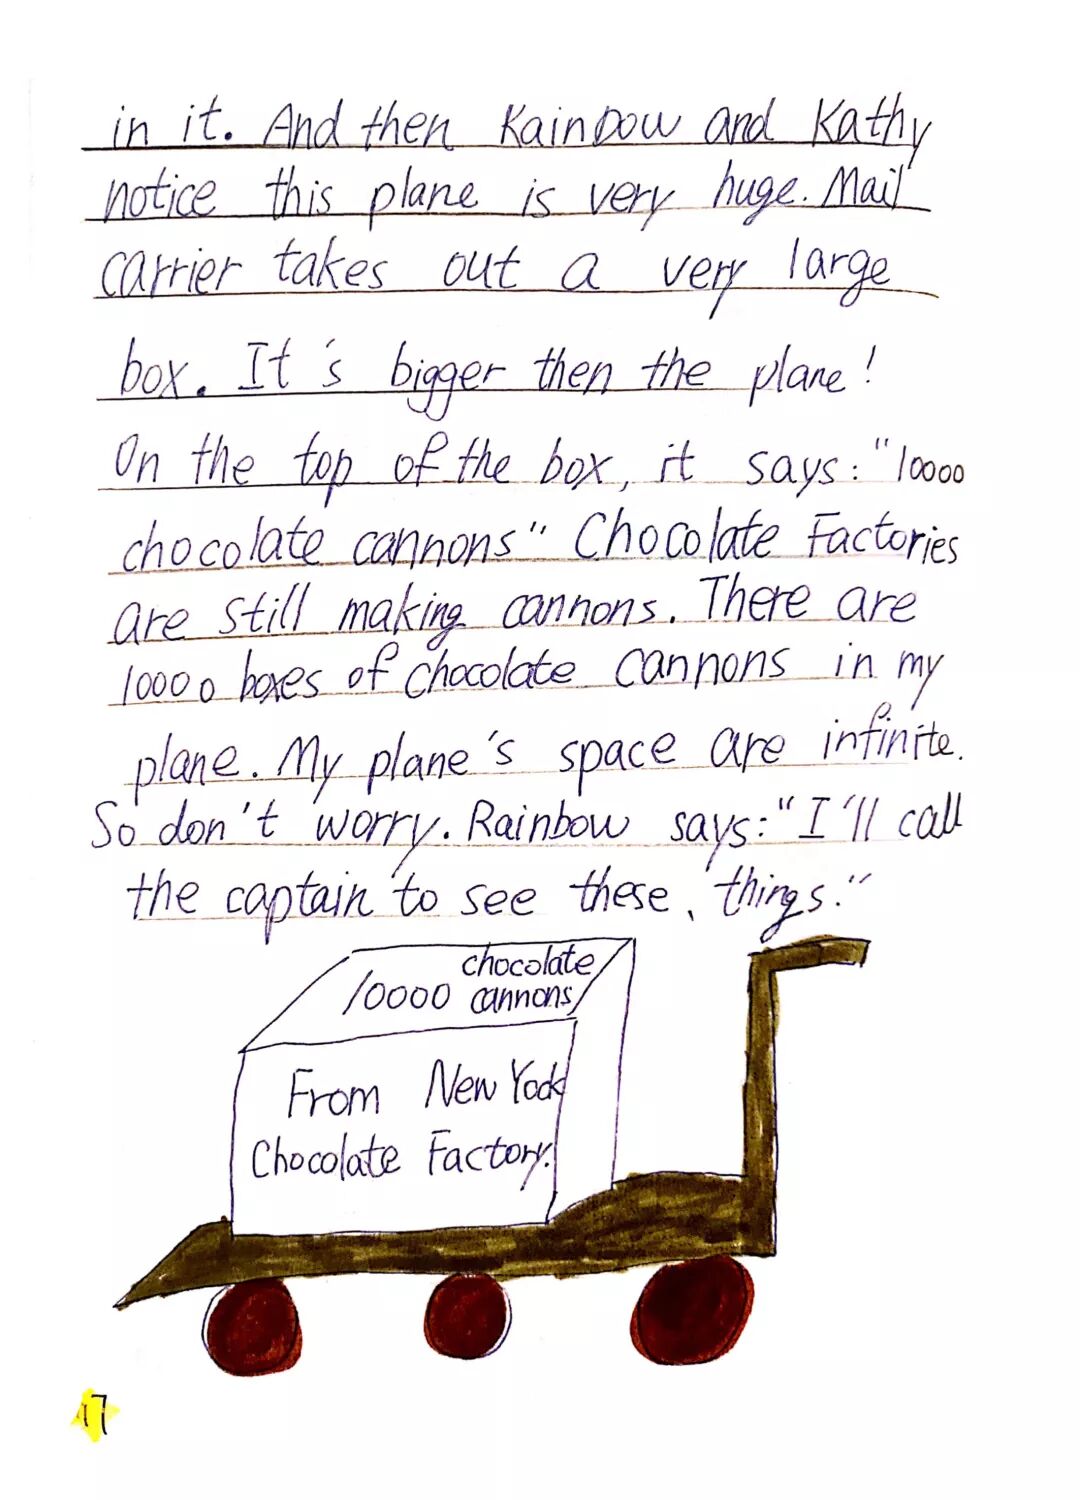 in it. And then Rainbow and Kathy
notice this plane is very huge. Mail
carrier takes out a very large
box. It's bigger then the plane!
On the top of the box, it says: "10000
chocolate cannons" Chocolate Factories
are still making cannons. There are
10000 boxes of chocolate cannons in my
plane. My plane's space are infinite.
So don't worry. Rainbow says: "I'll call
the captain to see these, things."
chocolate
10000 cannons
From New York
Chocolate Factory.
17